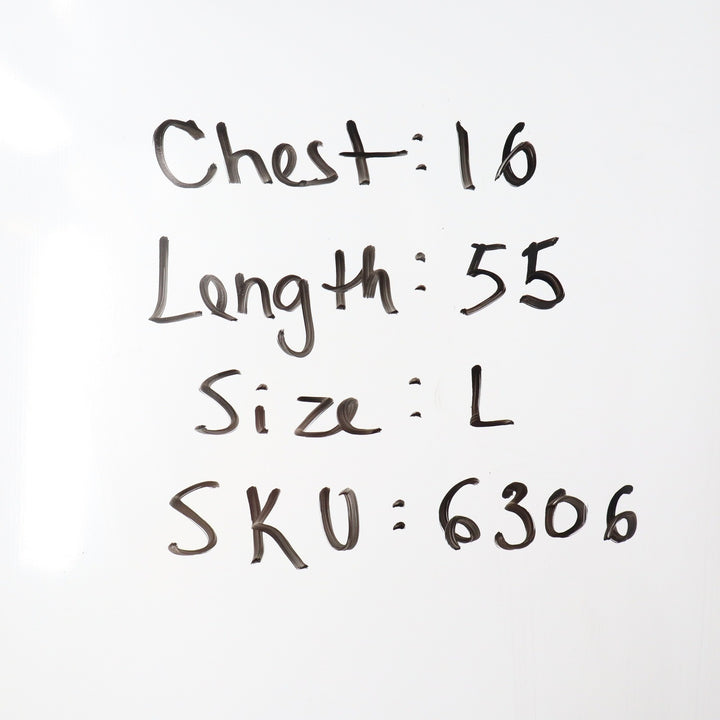 Chest: 16
Length: 55
Size: L
SKU: 6306